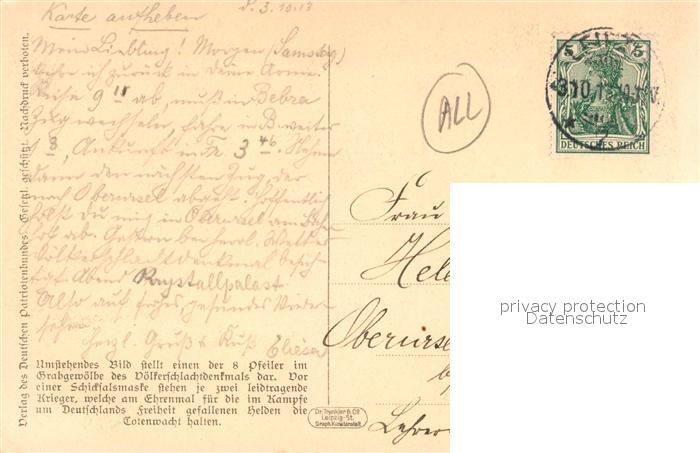 Karte aufheben
d. 3.10.13
Mein Liebling! Morgen (Samstag)
kehre ich zurück in deine Arme.
Reise 9 11 ab, muß in Bebra
Zug wechseln, fahre in B. weiter
1 8, Ankunft in Fr. 3 46. Nehme
dann den nächsten Zug, der
nach Oberursel abgeht. Hoffentlich
holst Du mich in Oberursel am Bahn
hof ab. Gestern bei herrl. Wetter
Völkerschlachtdenkmal besich
tigt Abend Krystallpalast
Also auf frohes gesundes Wieder
sehen
Herzl. Gruß & Kuß
Umstehendes Bild stellt einen der 8 Pfeiler im
Grabgewölbe des Völkerschlachtdenkmals dar. Vor
einer Schicksalsmaske stehen je zwei leidtragende
Krieger, welche am Ehrenmal für die im Kampfe
um Deutschlands Freiheit gefallenen Helden die
Totenwacht halten.
Verlag des Deutschen Patriotenbundes. Gesetzl. geschützt. Nachdruck verboten.
Dr. Trenkler & Co
Leipzig-St.
Graph. Kunstanstalt
ALL
5 5
DEUTSCHES REICH
Frau
Hele
Oberursel
Lehrer
privacy protection
Datenschutz